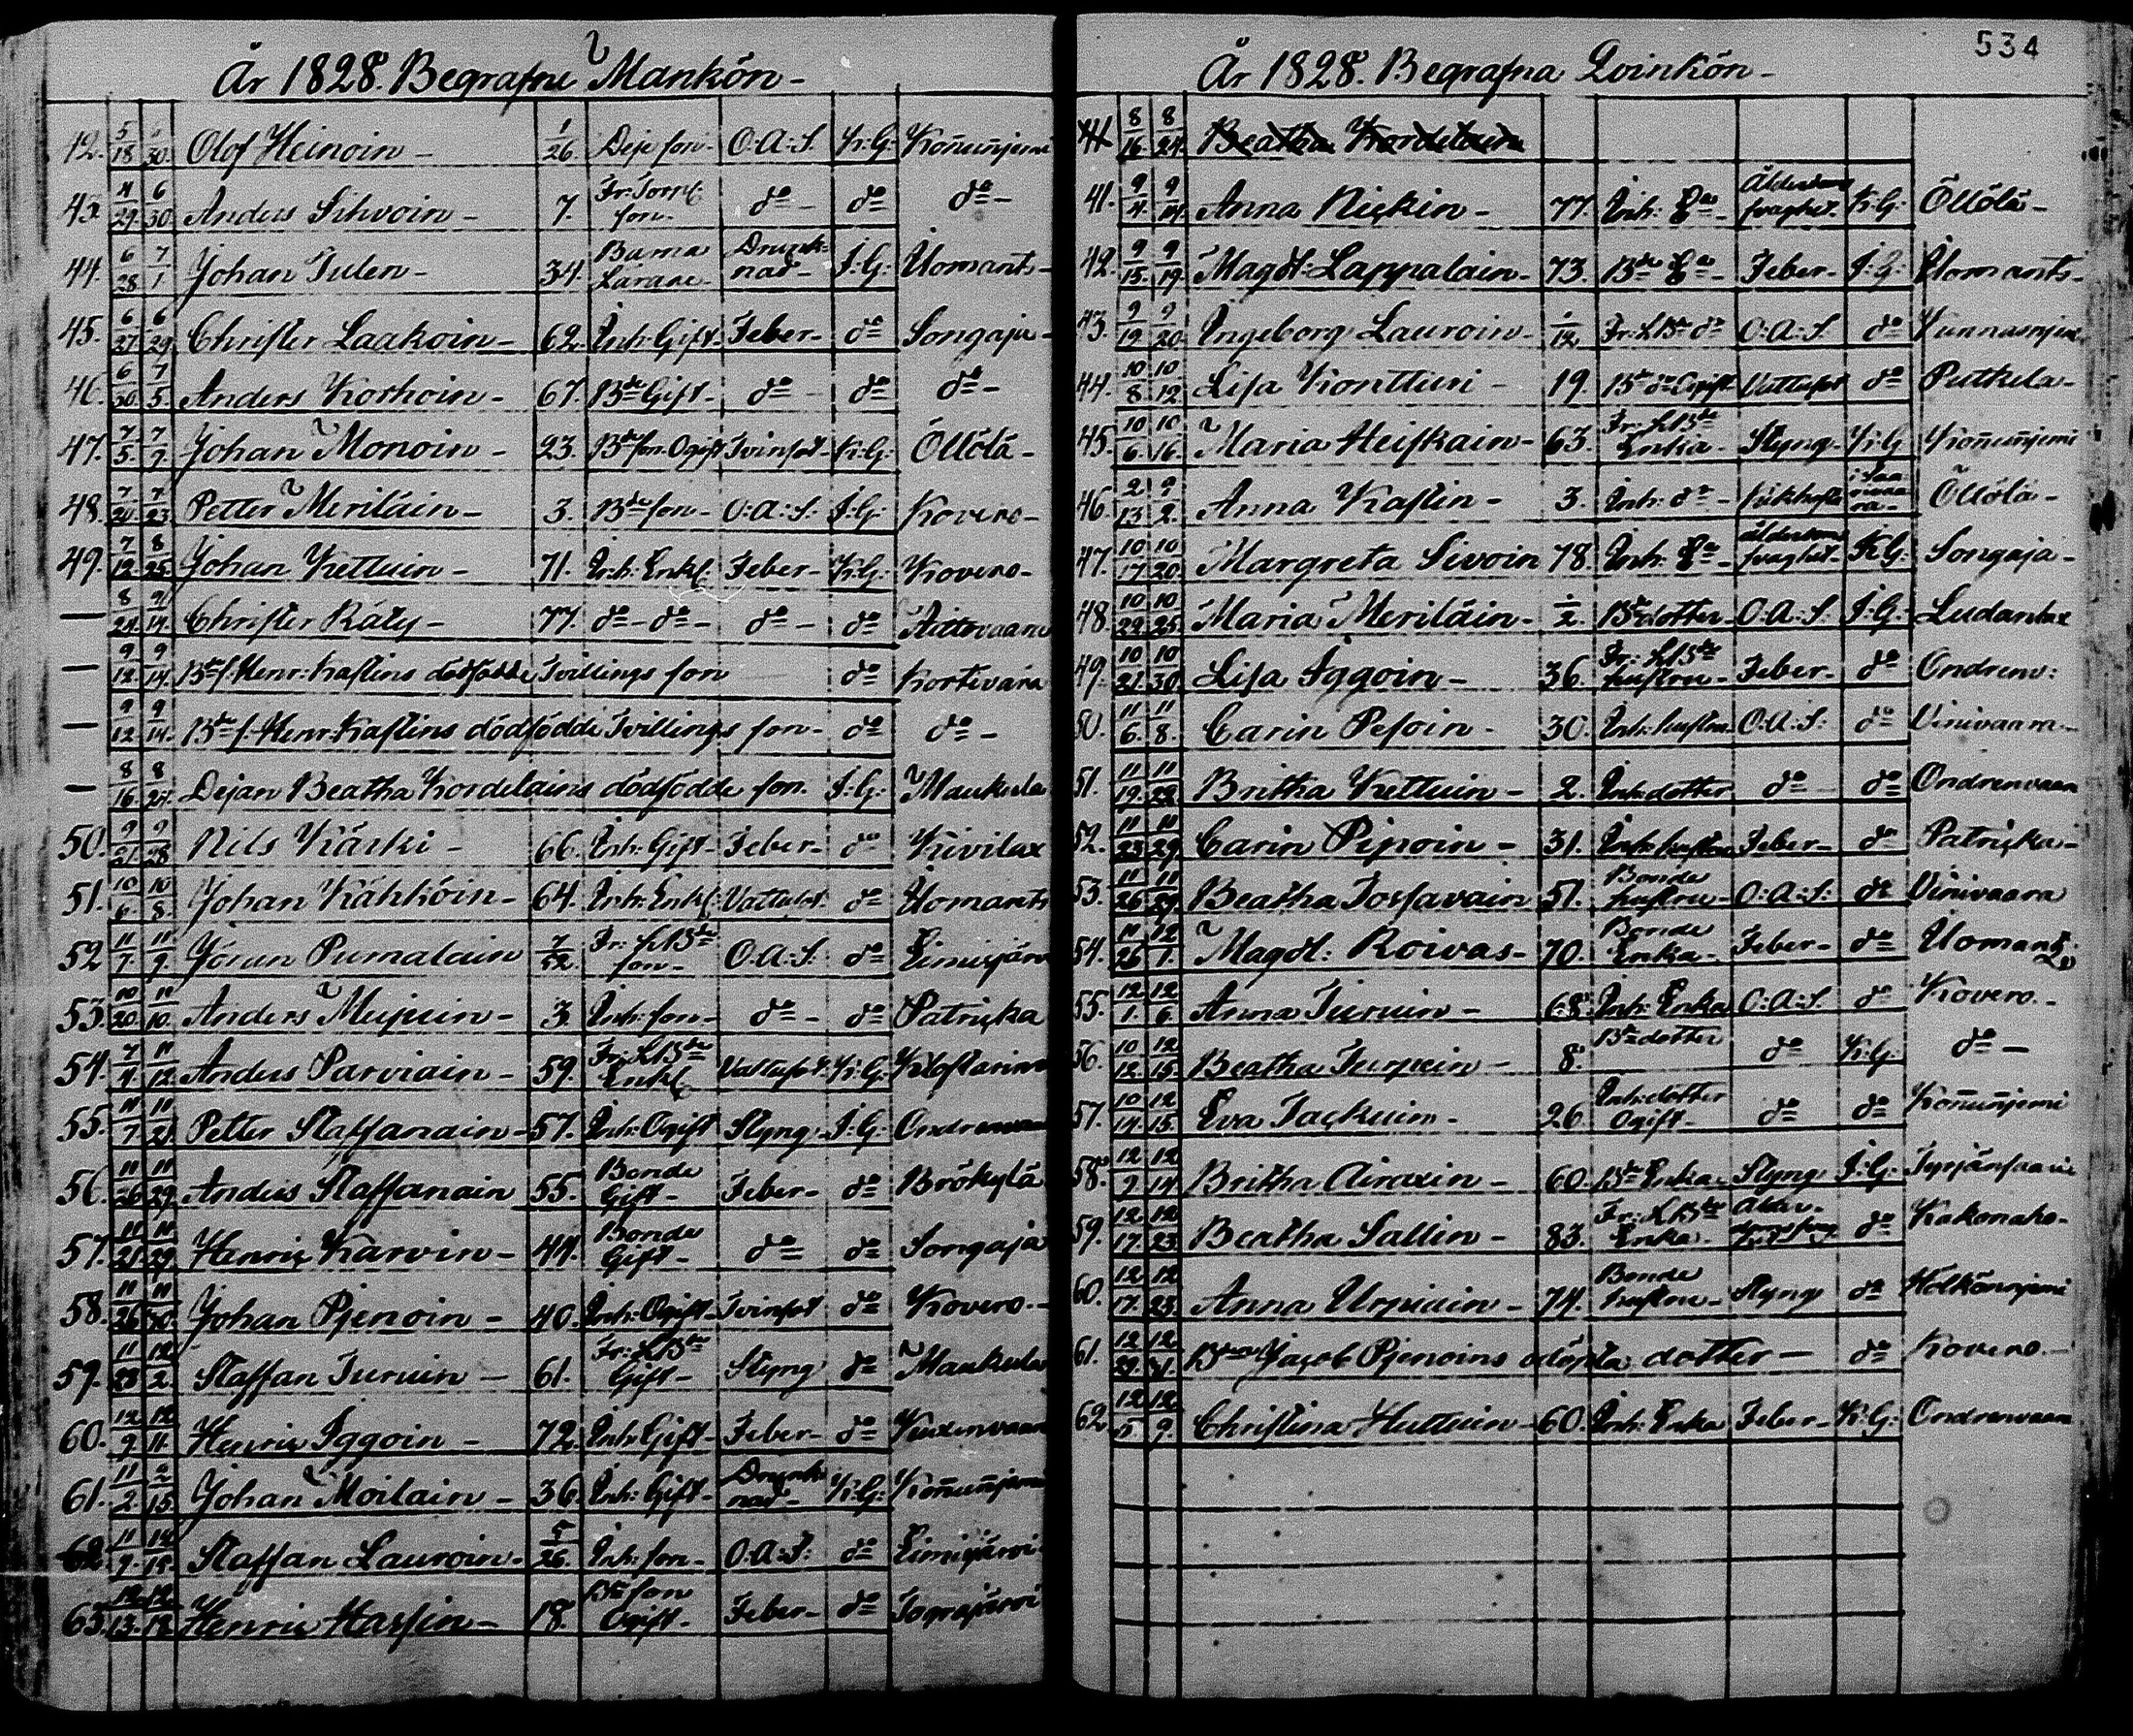 534
År 1828. Begrafne Mankön -
42. 5/18 30. Olof Heinoin - 1/26 Deje son - O: A: S. K: G: Koñuñjemi
43. 4/29 6/30 Anders Sihvoin - 7. Fr: Torp. son - do - do do -
44. 6/28 7/1 Johan Tulen - 34. Barna Lärare - Drunknad - I: G: Ilomants -
45. 6/27 6/29 Christer Laakoin - 62. Inh: Gift - Feber - do Songaja -
46. 6/30 7/5. Anders Korhoin - 67. Bde Gift - do - do do -
47. 7/5 7/7 Johan Monoin - 23. Bde son Ogift Tvinsot - K: G: Öllölä -
48. 7/20 7/23 Petter Meriläin - 3. Bde son - O: A: S: I: G: Kovero -
49. 7/12 8/25 Johan Kettuin - 71. Inh: Enkl. Feber - K: G: Kovero -
— 8/24 9/14 Christer Räty - 77. do - do - do - do
— 9/12 9/14 Bde s: Henr: Kastins dödfödde Tvillings son do Kortevara
— 9/12 9/14. Bde s: Henr: Kastins dödfödde Tvillings son - do do -
— 8/16 8/24 Dejan Beatha Kordelains dödfödde son. I: G: Maukula
50. 9/21 9/28 Nils Kärki - 66. Inh: Gift - Feber - do Kivilax
51. 10/6 10/8. Johan Kähköin - 64. Inh: Enkl: Vattusot do Ilomants
52 11/7 11/9. Jöran Pumalain 7/52 Fr: L Bde son - O: A: S: do Eimisjärv
53. 10/20 11/10. Anders Mujuin - 3. Inh: son - do - do Patricka
54. 7/4 11/12 Anders Parviain - 59. Fr: L Bde Enkl. Vattusot. K: G:
55. 11/7 11/21 Petter Staffanain - 57. Inh: Ogift Styng - I: G: Ondrenvaa
56. 11/26 11/29. Anders Staffanain 55. Bonde Gift - Feber - do Brökylä
57. 11/21 11/29. Henric Karvin - 44. Bonde Gift - do do Songaja
58. 11/26 11/30. Johan Pjenoin - 40. Inh: Ogift - Tvinsot do Kovero. -
59. 11/23 12/2. Staffan Turuin - 61. Fr: L Bde Gift - Styng do Maukula
60. 12/9 12/11. Henric Iggoin - 72. Inh: Gift - Feber - do
61. 11/2 15. Johan Moilain - 36. Inh: Gift - Drunknad - K: G: Koñuñjemi
62 11/7 Staffan Lauroin - 5/26. Inh: son - O: A: S: do Eimisjärvi
63. 12/13. 12/19 Henric Hassin - 18. Bde son Ogift - Feber - do
År 1828. Begrafna Qvinkön -
41 8/16 8/24 Beatha Kordelain
41. 9/4 9/14. Anna Nickin - 77. Inh: Ea - Ålderdoms svaghet. K: G: Öllölä -
42. 9/15. 9/19 Magdl: Lappalain - 73. Bde Ea - Feber - I: G: Ilomants -
43. 9/19 9/20. Ingeborg Lauroin - 1/12 Fr: L Bde do O: A: S do
44. 10/8 10/12 Lisa Kontturi - 19. Bde do Ogift Vattusot do Putkela -
45. 10/6 10/16. Maria Heiskain - 63. Fr: L Bde Enka - Styng - K: G Koñuñjemi
46. 2/13 9/2. Anna Kastin - 3. Inh: do - Öllölä -
47. 10/17 10/20. Margreta Sivoin 78. Inh: Ea - ålderdoms svaghet - K: G: Songaja -
48. 10/22 10/25 Maria Meriläin - 1/2 Bde dotter - O: A: S I: G: Ludanlax
49. 10/21. 10/30 Lisa Iggoin - 36. Fr: L Bde hustru - Feber - do Ondrenv:
50. 11/6. 11/8. Carin Pesoin - 30. Inh: hustru O: A: S: do Vinivaara -
51. 11/19 11/22 Britha Kettuin - 2. Inh: dotter do - do Ondrenvaara
52. 11/23 11/29. Carin Pipoin - 31. Inh: hustru Feber - do Patricka -
53. 11/26 11/29 Beatha Tossavain 51. Bonde hustru - O: A: S: do Vinivaara
54. 11/26 12/1. Magdl: Roivas - 70. Bonde Enka - Feber - do Ilomants
55. 12/1. 12/6. Anna Turuin - 68. Inh: Enka O: A: S. do Kovero. -
56. 10/12 12/15. Beatha Turpuin - 8. Bde dotter do K: G. do —
57. 10/14. 12/15. Eva Tackuin - 26 Inh: dotter Ogift - do do Koñuñjemi
58. 12/9 12/14 Britha Airaxin - 60. Bde Enka - Styng I: G:
59. 12/17 12/23. Beatha Sallin - 83. Fr: L Bde Enka - do Kakonaho -
60. 12/17. 12/23. Anna Urpiain - 74. Bonde hustru - Styng do
61. 12/29 12/31. Bden Jacob Pjenoins odöpta dotter — do Kovero. -
62 12/5 12/9. Christina Huttuin - 60. Inh: Enka Feber - K: G: Ondrenvaara